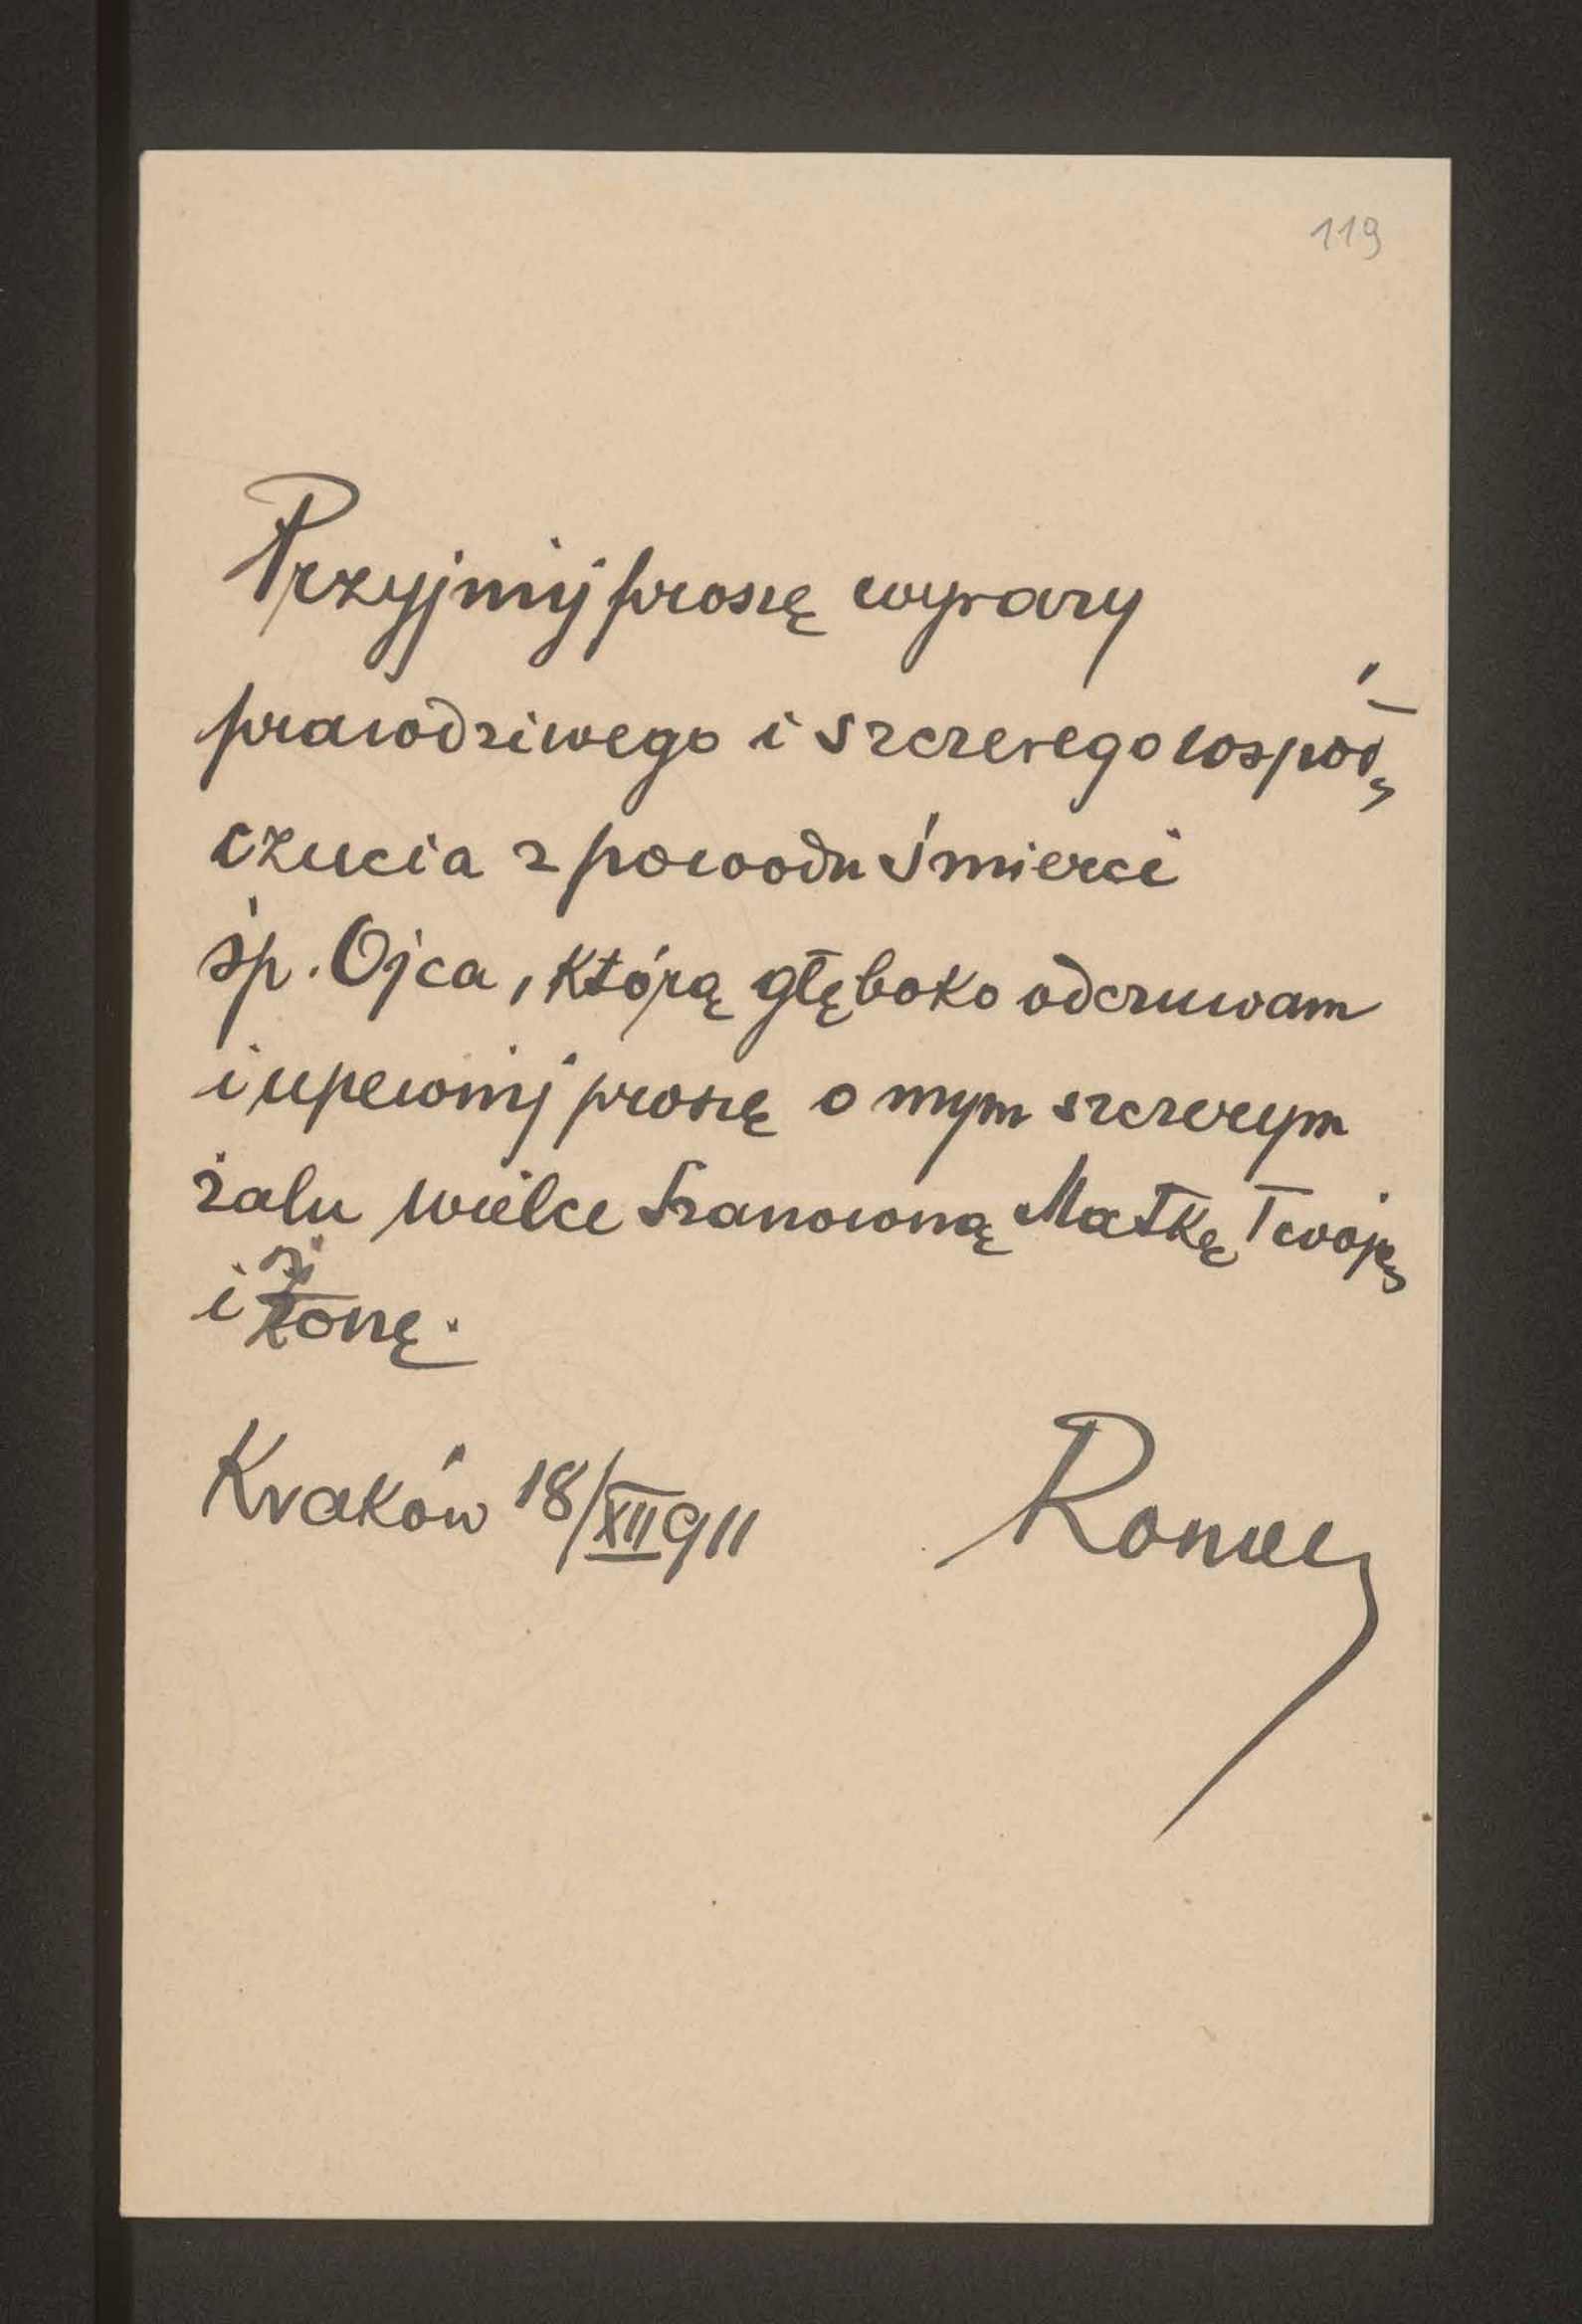 119
Przyjmij proszę wyrazy
prawdziwego i szczerego współ-
czucia z powodu śmierci
śp. Ojca, którą głęboko odczuwam
i upewnij proszę o mym szczerym
żalu wielce Szanowną Matkę Twoję
i Żonę.
Kraków 18/XII 911